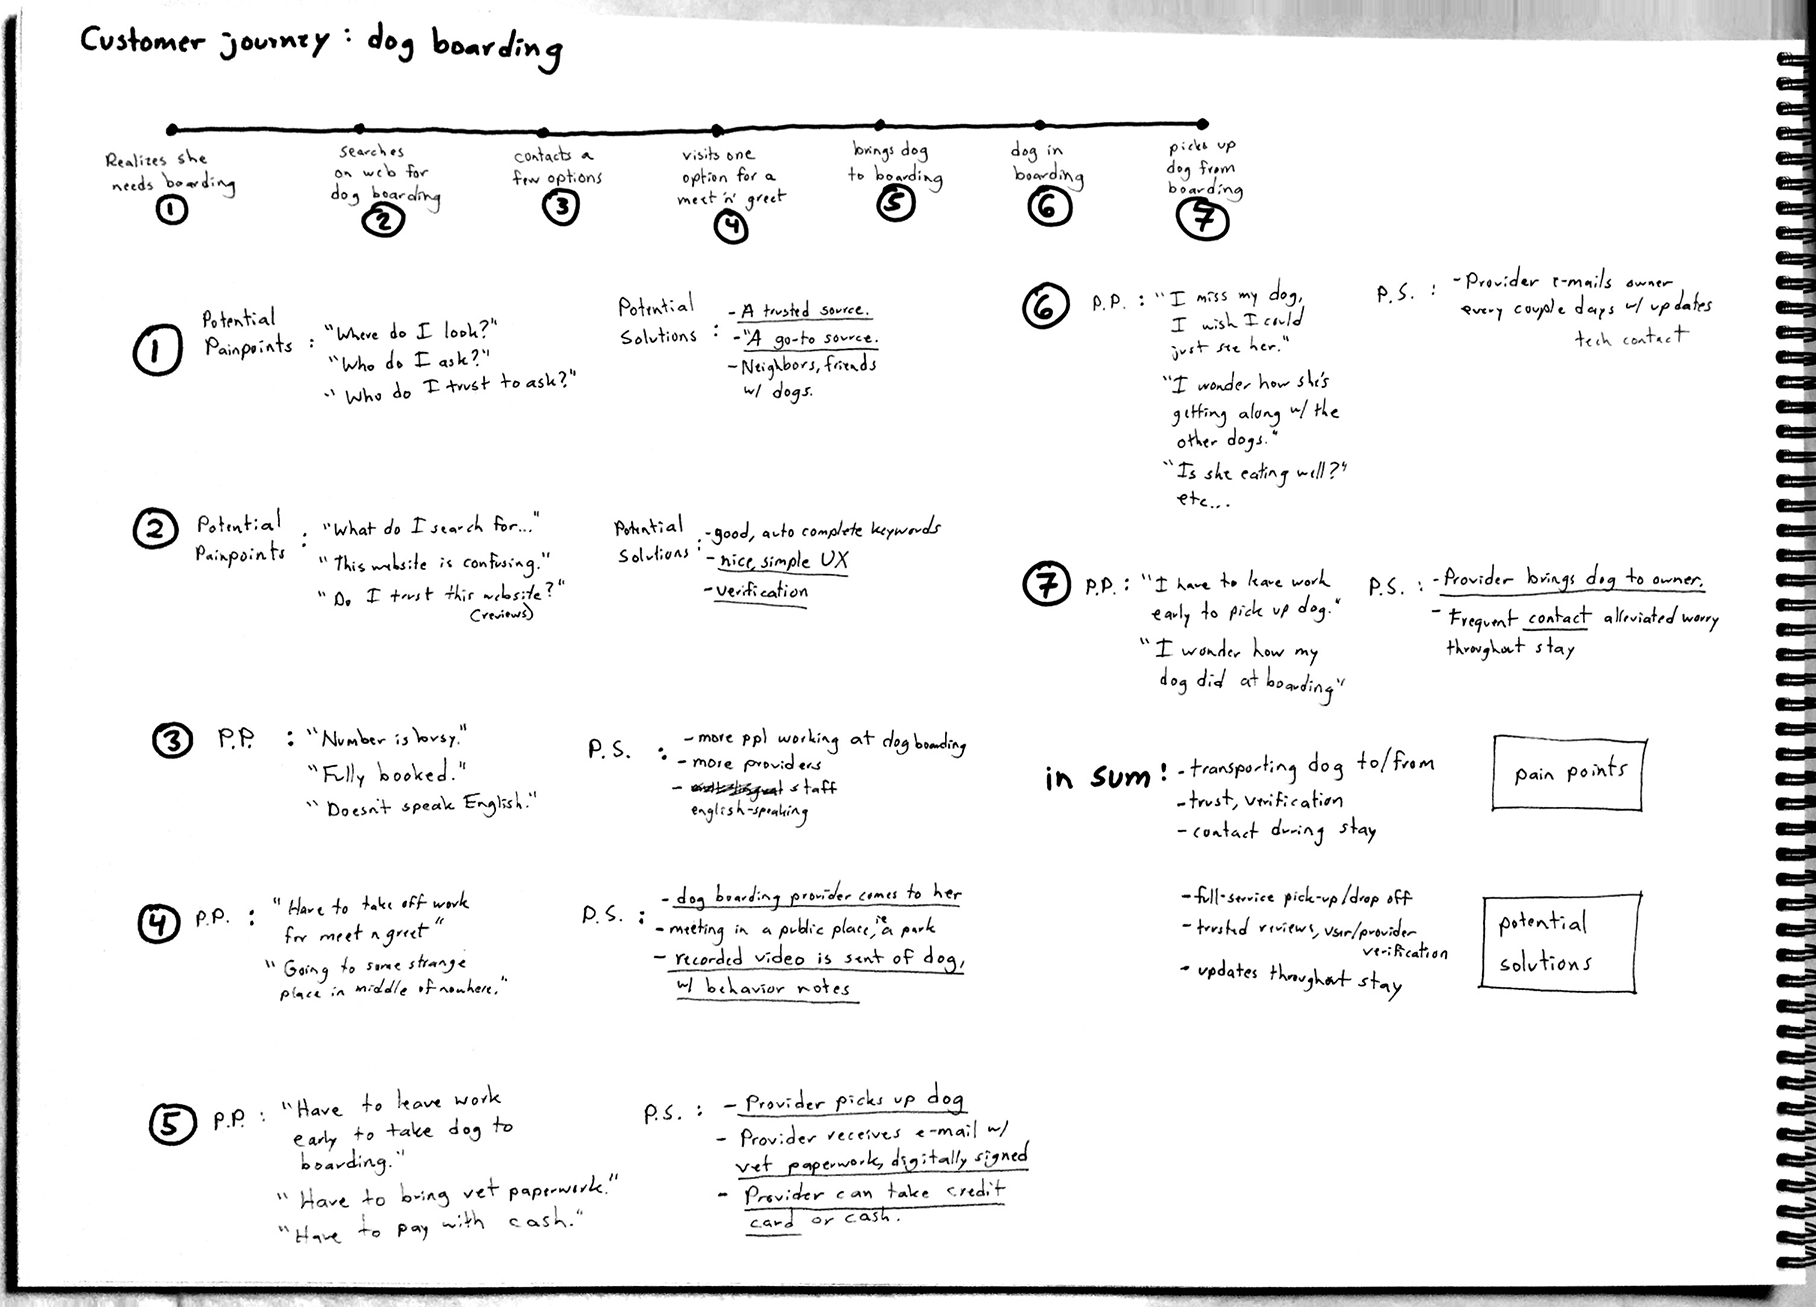 Customer journey : dog boarding
Realizes she
needs boarding
1
searches
on web for
dog boarding
2
contacts a
few options
3
visits one
option for a
meet 'n' greet
4
brings dog
to boarding
5
dog in
boarding
6
picks up
dog from
boarding
7
1
Potential
Painpoints :
"Where do I look?"
"Who do I ask?"
"Who do I trust to ask?"
Potential
Solutions :
- A trusted source.
- "A go-to source.
- Neighbors, friends
w/ dogs.
2
Potential
Painpoints :
"What do I search for..."
"This website is confusing."
"Do I trust this website?"
(reviews)
Potential
Solutions :
- good, auto complete keywords
- nice, simple UX
- verification
3
P.P. :
"Number is busy."
"Fully booked."
"Doesn't speak English."
P.S. :
- more ppl working at dog boarding
- more providers
- staff
english-speaking
4
P.P. :
"Have to take off work
for meet n greet"
"Going to some strange
place in middle of nowhere."
P.S. :
- dog boarding provider comes to her
- meeting in a public place, ie a park
- recorded video is sent of dog,
w/ behavior notes
5
P.P. :
"Have to leave work
early to take dog to
boarding."
"Have to bring vet paperwork."
"Have to pay with cash."
P.S. :
- Provider picks up dog
- Provider receives e-mail w/
vet paperwork, digitally signed
- Provider can take credit
card or cash.
6
P.P. :
"I miss my dog,
I wish I could
just see her."
"I wonder how she's
getting along w/ the
other dogs."
"Is she eating well?"
etc...
P.S. :
- Provider e-mails owner
every couple days w/ updates
tech contact
7
P.P. :
"I have to leave work
early to pick up dog."
"I wonder how my
dog did at boarding"
P.S. :
- Provider brings dog to owner.
- Frequent contact alleviated worry
throughout stay
in sum!
- transporting dog to/from
- trust, verification
- contact during stay
pain points
- full-service pick-up/drop off
- trusted reviews, user/provider
verification
- updates throughout stay
potential
solutions